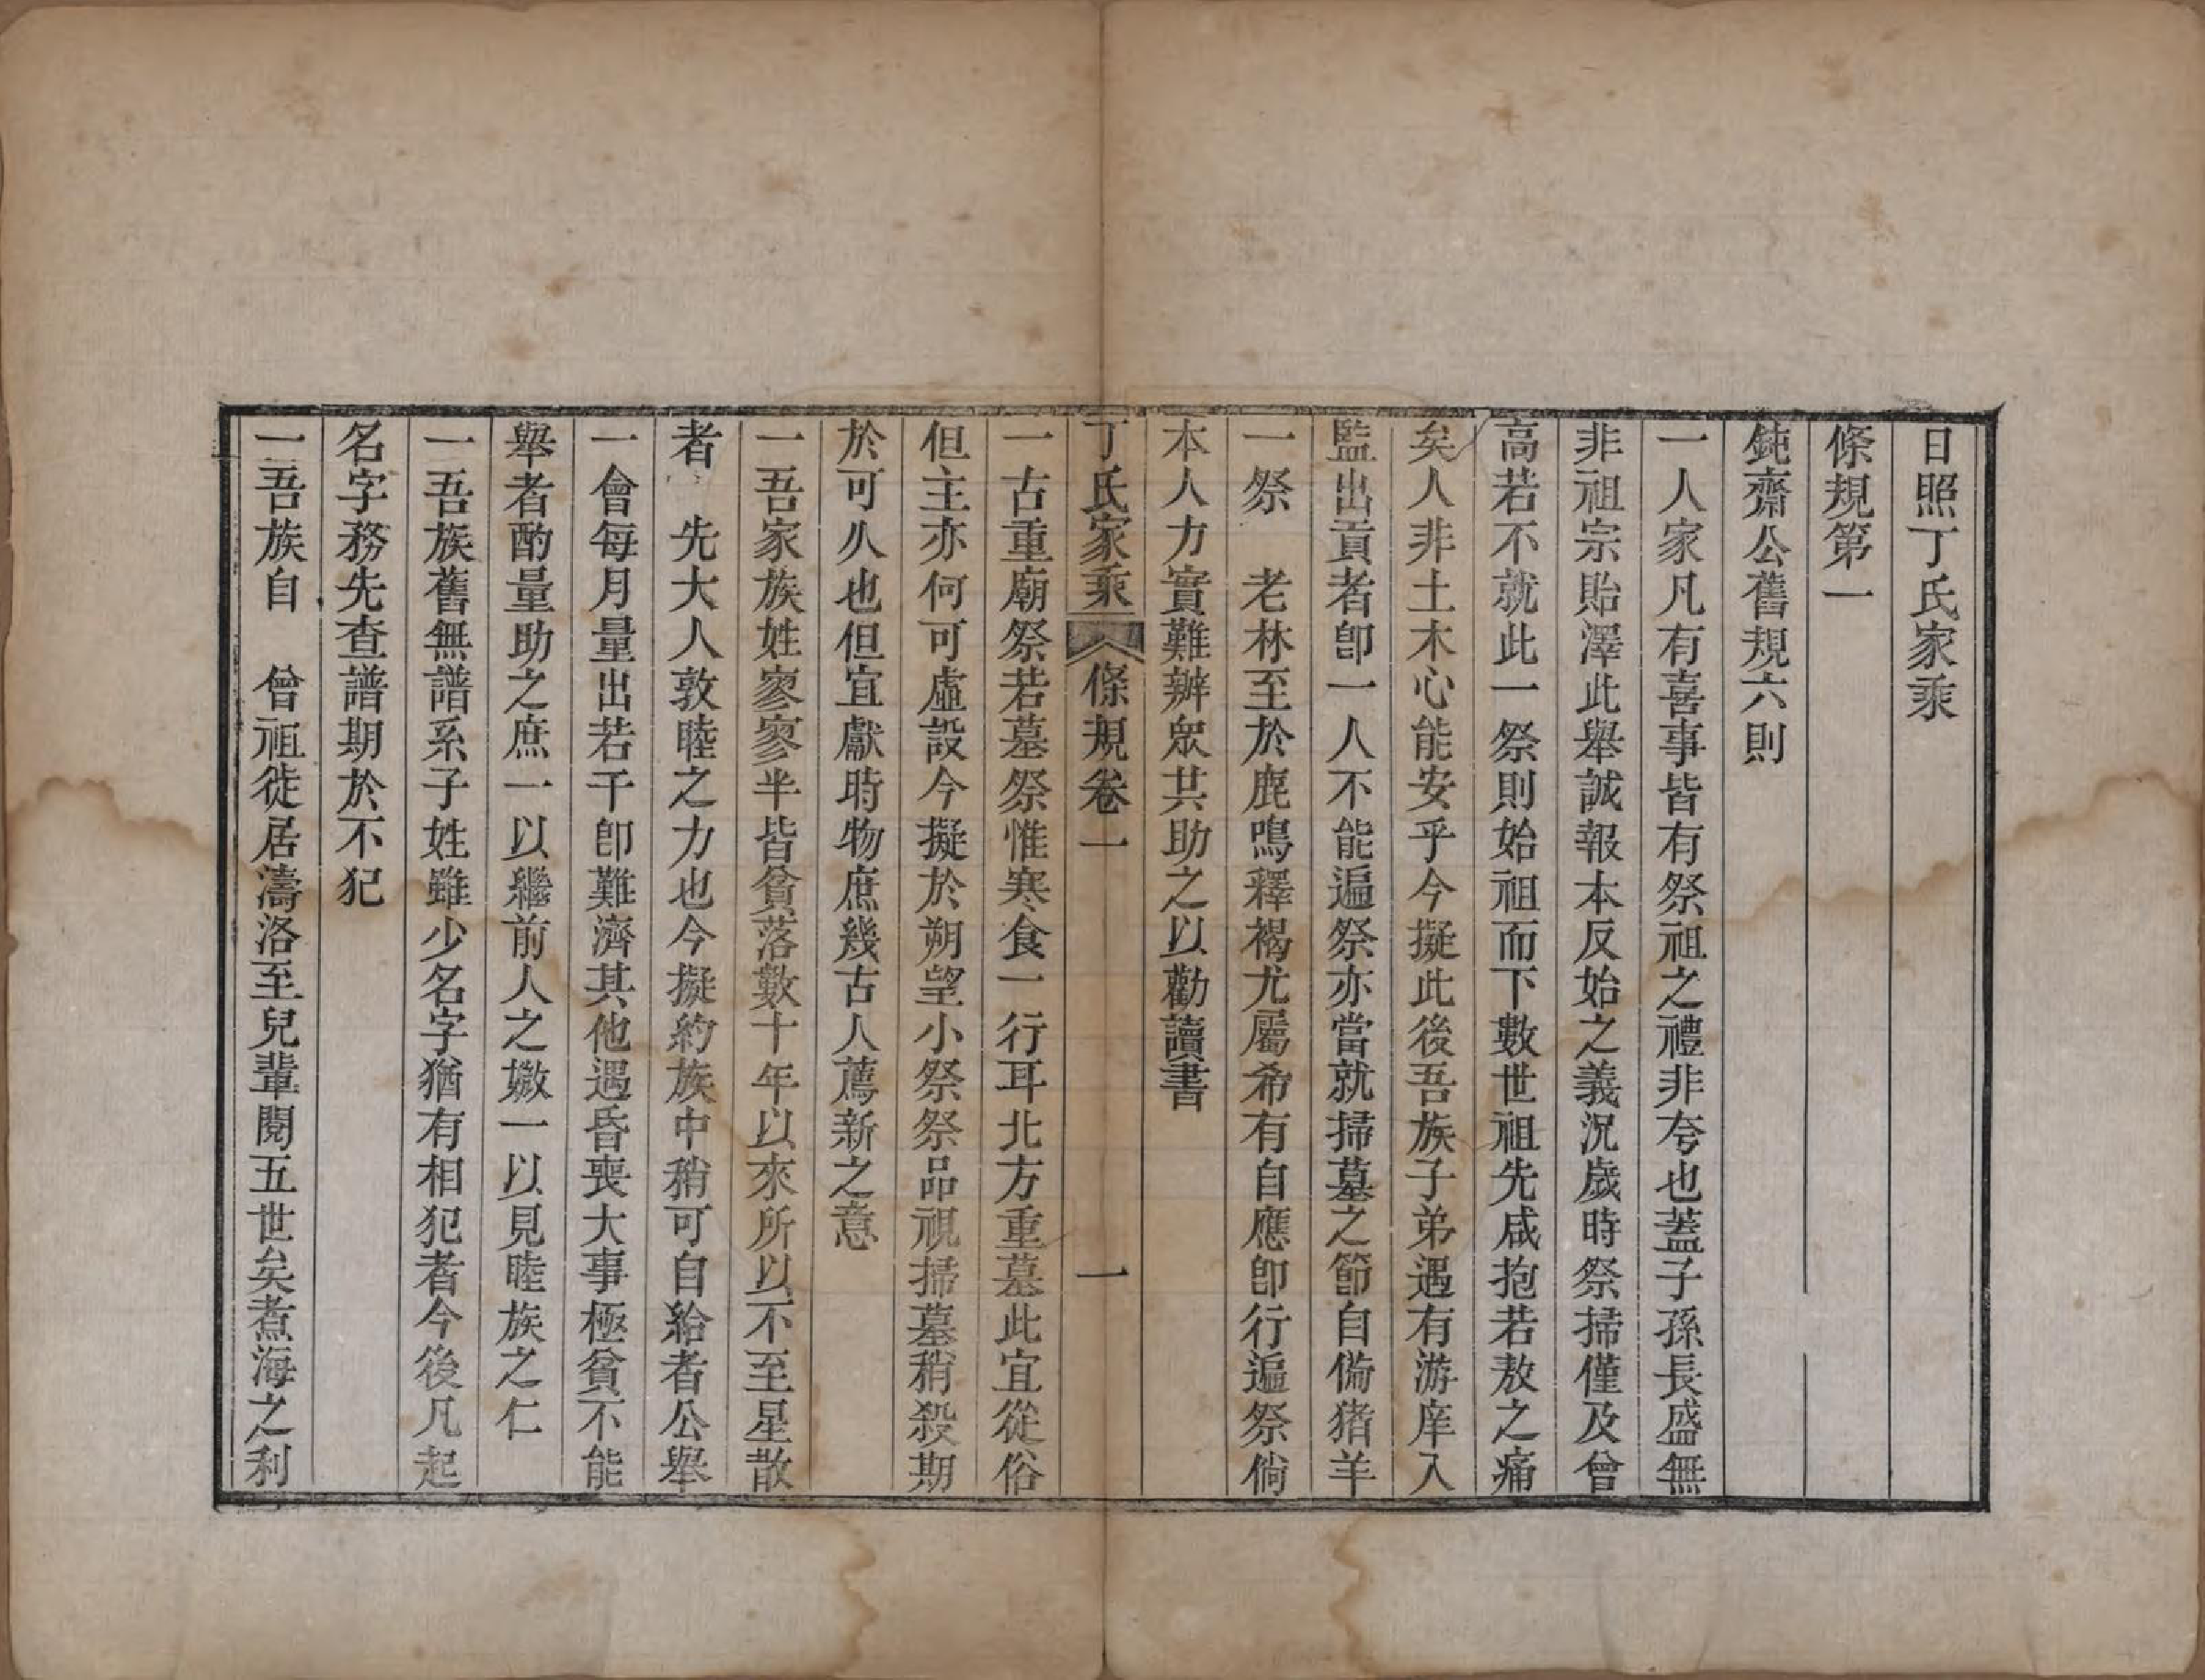 日照丁氏家乘
條規第一
鈍齋公舊規六則
一人家凡有喜事皆有祭祖之禮非夸也蓋子孫長盛無
非祖宗貽澤此舉誠報本反始之義況歲時祭掃僅及曾
高若不就此一祭則始祖而下數世祖先咸抱若敖之痛
矣人非土木心能安乎今擬此後吾族子弟遇有游庠入
監出貢者卽一人不能遍祭亦當就掃墓之節自備猪羊
一祭　老林至於鹿鳴釋褐尤屬希有自應卽行遍祭倘
本人力實難辦衆共助之以勸讀書
丁氏家乘　條規卷一　一
一古重廟祭若墓祭惟寒食一行耳北方重墓此宜從俗
但主亦何可虛設今擬於朔望小祭祭品視掃墓稍殺期
於可久也但宜獻時物庶幾古人薦新之意
一吾家族姓寥寥半皆貧落數十年以來所以不至星散
者　先大人敦睦之力也今擬約族中稍可自給者公舉
一會每月量出若干卽難濟其他遇昏喪大事極貧不能
舉者酌量助之庶一以繼前人之媺一以見睦族之仁
一吾族舊無譜系子姓雖少名字猶有相犯者今後凡起
名字務先查譜期於不犯
一吾族自　曾祖徙居濤洛至兒輩閱五世矣煮海之利